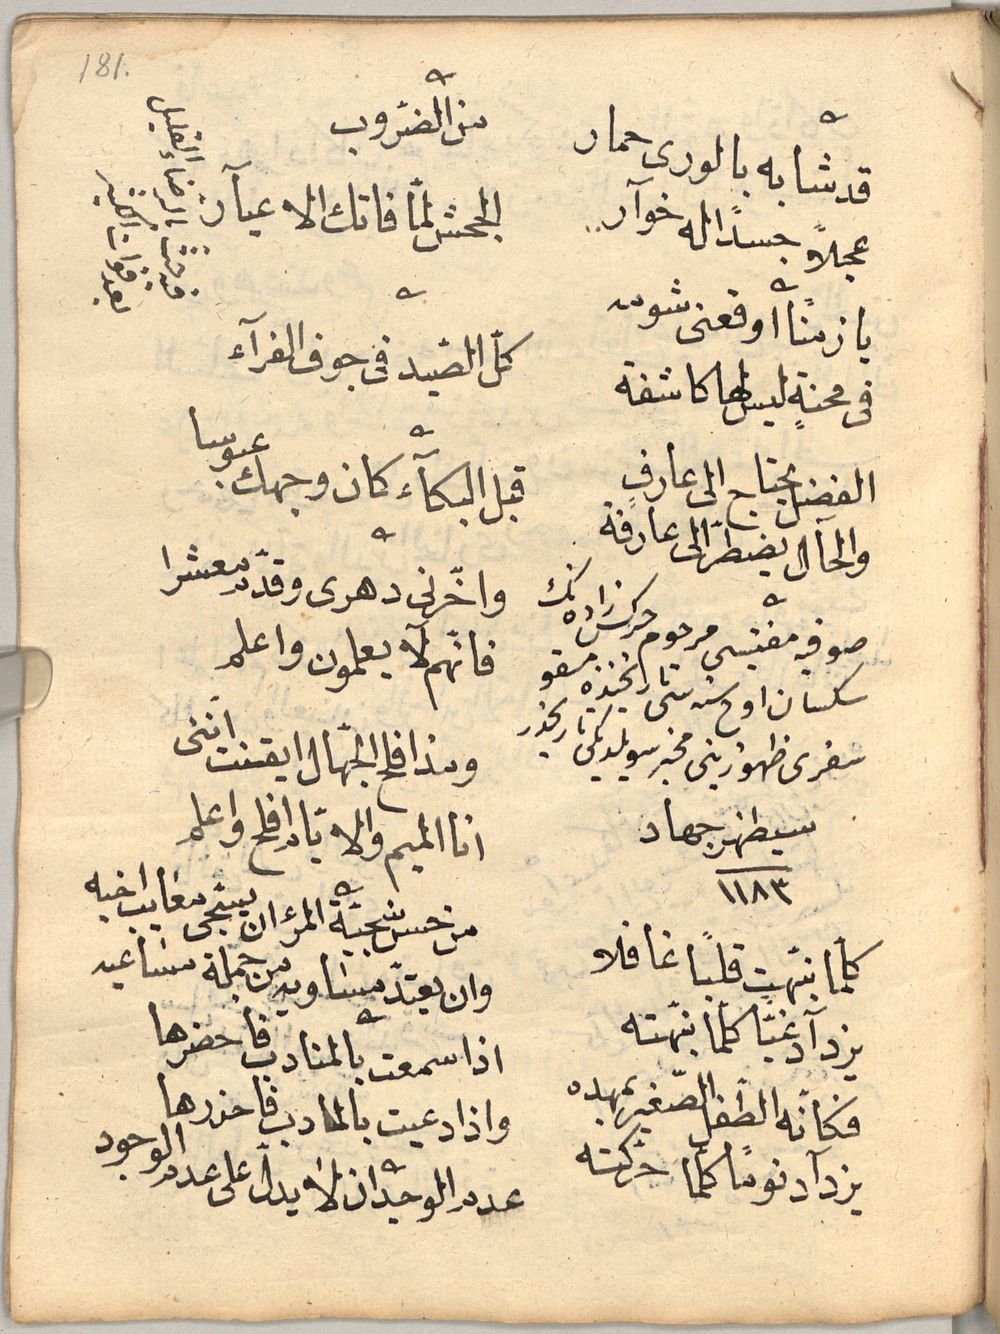 181.
قد شابه بالورى حمار
عجلاً جسداً له خوآر
يا زمنًا اوقعنى شومه
فى محنةٍ ليس لها كاشفة
الفضل يحتاج الى عارفٍ
والحآل يضطرّ الى عارفة
صوفيه مفتيسى مرحوم چركس زاده نك
سكسان اوچ سنه سى تاريخنده مسقو
سفرى ظهورينى مخبر سويلديكى تاريخدر
سيظهر جهاد
١١٨٣
كلّما نبّهت قلبًا غافلا
يزدآد غيّا كلّما نبّهته
فكانّه الطّفل الصّغير بمهده
يزدآد نومًا كلّما حرّكته
من الضروب
الجحش لمّا فاتك الاعيآر
فى حثّ الرضاء القليل
بعد فوات الكثير
كلّ الصّيد فى جوف الفرآء
قبل البكآء كان وجهك عبوسا
واخّرنى دهرى وقدّم معشرا
فانّهم لا يعلمون واعلم
ومذ افلح الجهّال ايقنت انّنى
انا الميم والايّام افلح واعلم
من خسّ سجيّة المرء ان يستحى معايب اخيه
وان يعتدّ مساويه من جملة مساعيه
اذا سمعت بالمنادب فاحضرها
واذا دعيت بالمآدب فاحذرها
عدم الوجدان لا يدلّ على عدم الوجود